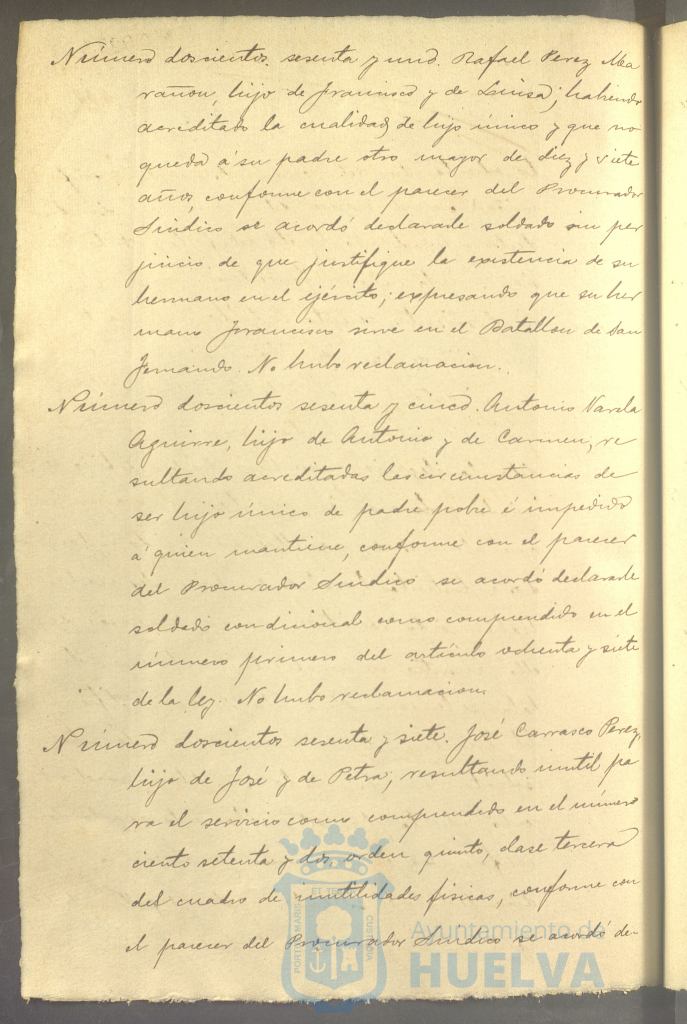 Número doscientos sesenta y uno. Rafael Perez Ma
rañon, hijo de Francisco y de Luisa; habiendo
acreditado la cualidad de hijo único y que no
queda á su padre otro mayor de diez y siete
años, conforme con el parecer del Procurador
Sindico se acordó declararle soldado sin per
juicio de que justifique la existencia de su
hermano en el ejército; expresando que su her
mano Francisco sirve en el Batallon de San
Fernando. No hubo reclamacion.
Número doscientos sesenta y cinco. Antonio Varela
Aguirre, hijo de Antonio y de Carmen, re
sultando acreditadas las circunstancias de
ser hijo único de padre pobre é impedido
á quien mantiene, conforme con el parecer
del Procurador Sindico se acordó declararle
soldado condicional como comprendido en el
número primero del artículo ochenta y siete
de la ley. No hubo reclamacion.
Número doscientos sesenta y siete. José Carrasco Perez,
hijo de José y de Petra; resultando inutil pa
ra el servicio como comprendido en el número
ciento setenta y dos, orden quinto, clase tercera
del cuadro de inutilidades fisicas, conforme con
el parecer del Procurador Sindico se acordó de-
PORTUS MARIS ET TERRAE CUSTODIA
Ayuntamiento de
HUELVA